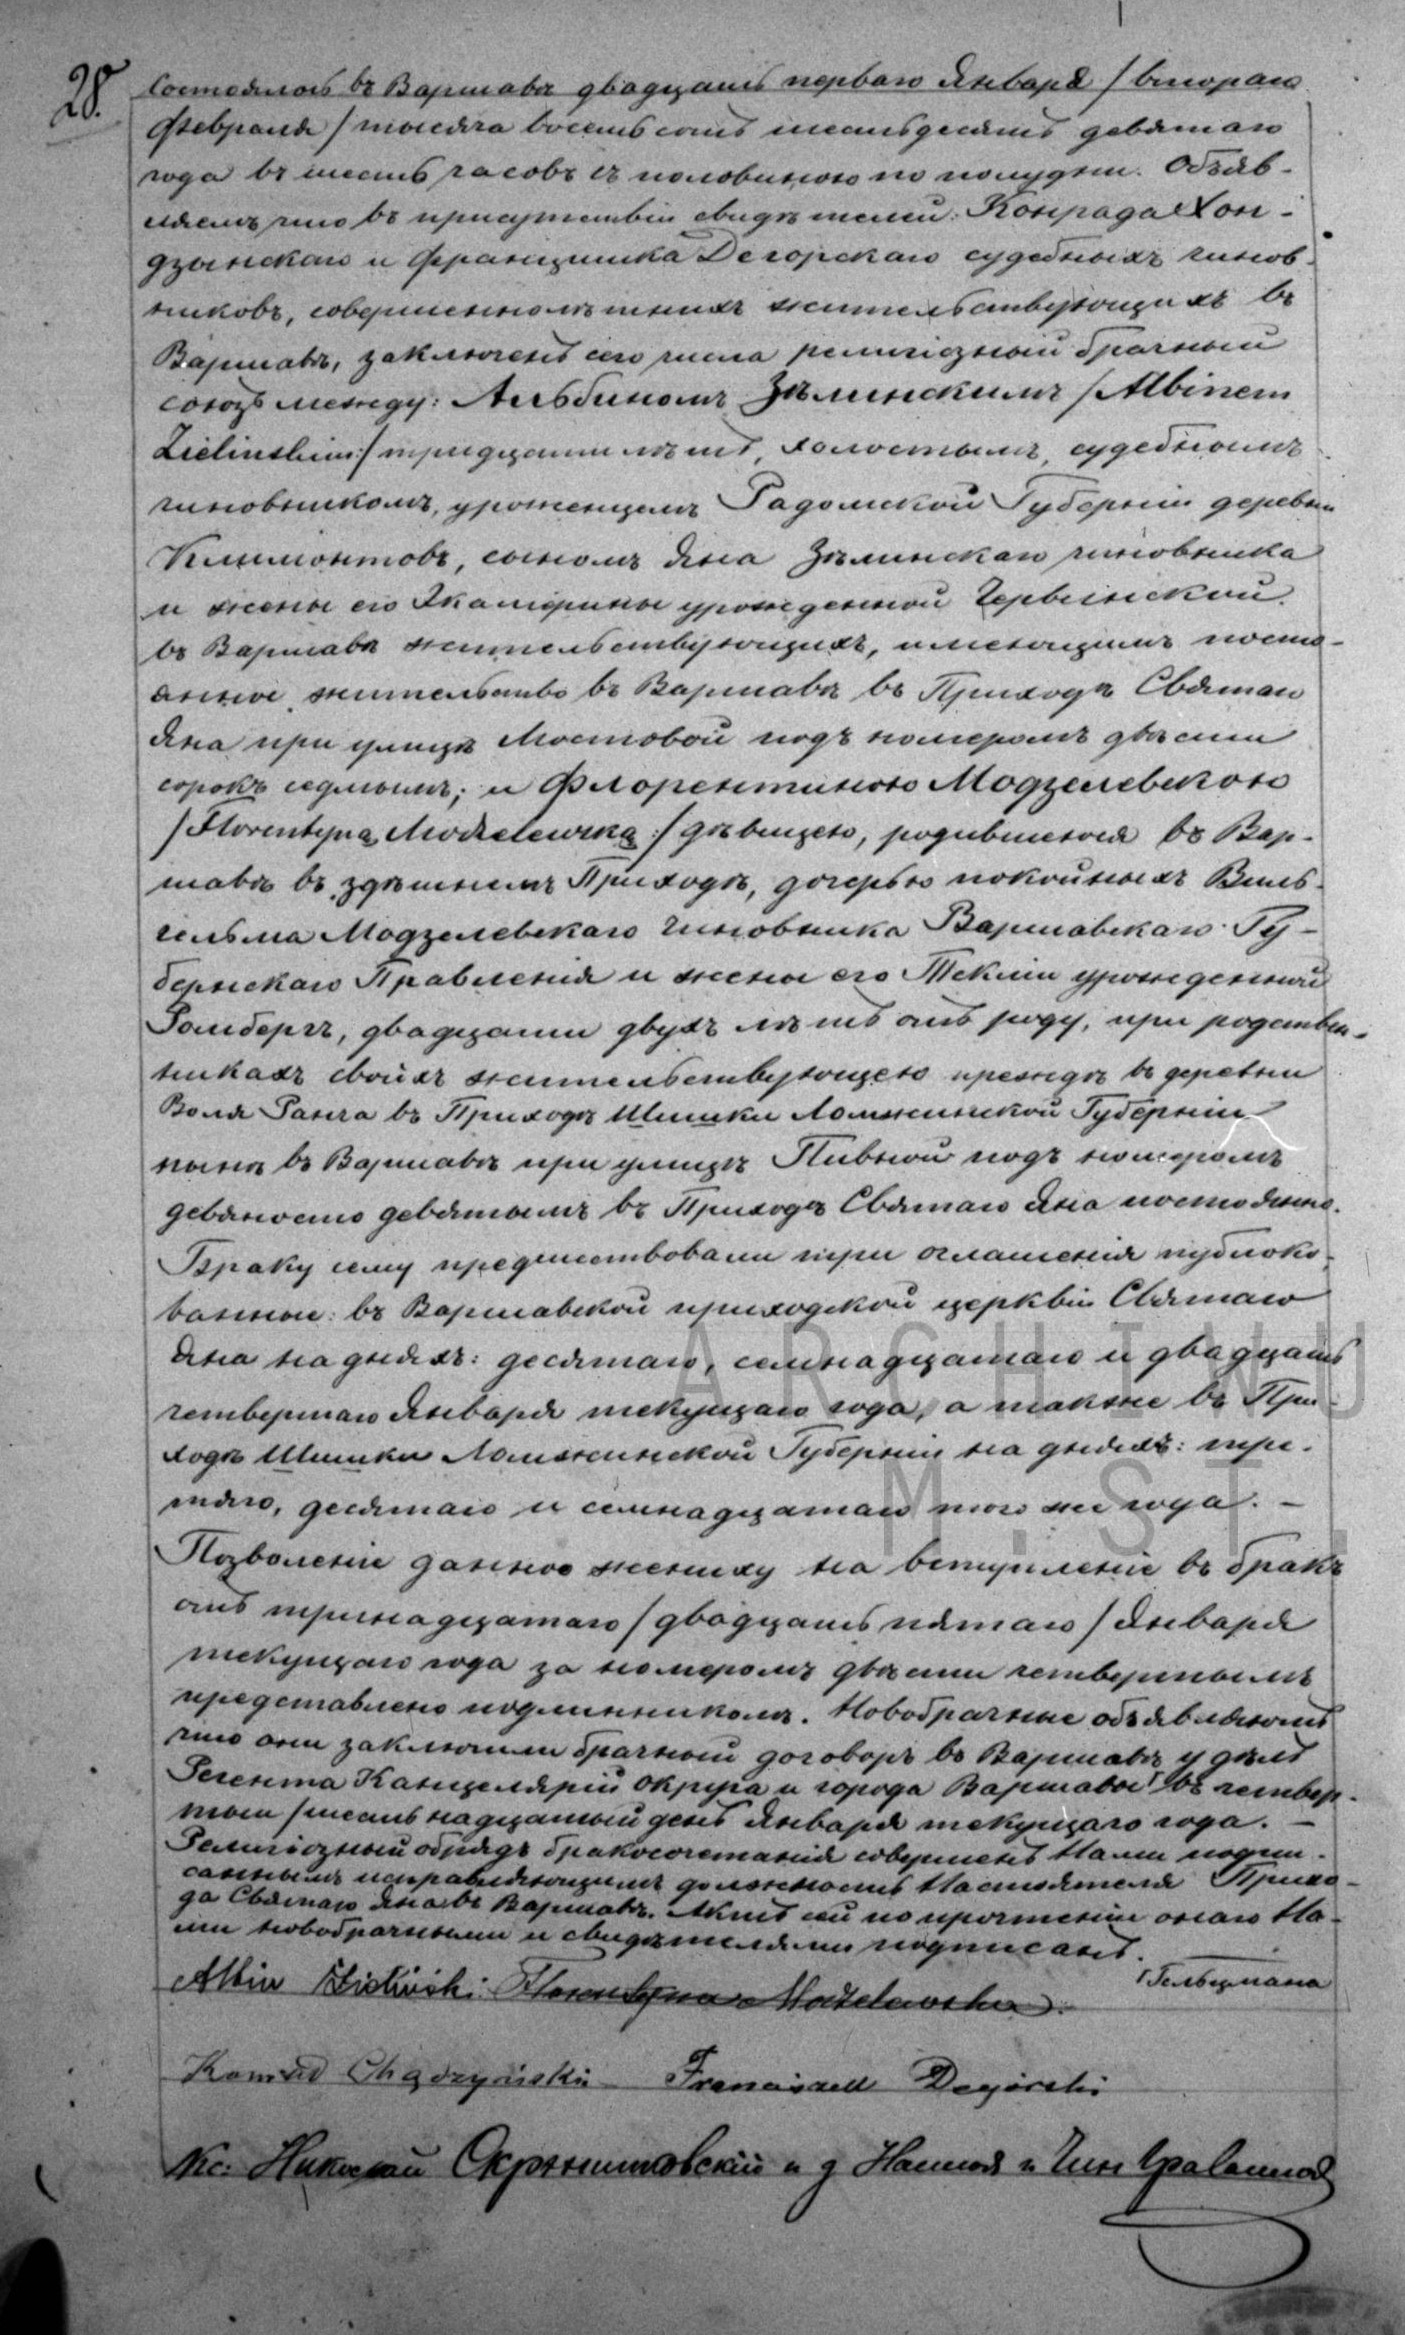 28.
Состоялось въ Варшавѣ двадцать перваго Января /втораго
Февраля/ тысяча восемьсотъ шестьдесятъ девятаго
года въ шесть часовъ съ половиною по полудни. Объяв-
ляемъ что въ присутствіи свидѣтелей: Конрада Хон-
дзынскаго и Францишка Дегорскаго судебныхъ чинов-
никовъ, совершеннолѣтнихъ жительствующихъ въ
Варшавѣ, заключенъ сего числа религіозный брачный
союзъ между: Альбиномъ Зѣлинскимъ /Albinem
Zielińskim:/ тридцати лѣтъ, холостымъ, судебнымъ
чиновникомъ, уроженцемъ Радомской Губерніи деревни
Климонтовъ, сыномъ Яна Зѣлинскаго чиновника
и жены его Екатерины урожденной Червинской
въ Варшавѣ жительствующихъ, имеющимъ посто-
янное жительство въ Варшавѣ въ Приходѣ Святаго
Яна при улицѣ Мостовой подъ номеромъ двѣсти
сорокъ седмымъ; и Флорентиною Модзелевскою
/Florentyną Modzelewską:/ дѣвицею, родившеюся въ Вар-
шавѣ въ здѣшнемъ Приходѣ, дочерью покойныхъ Виль-
гельма Модзелевскаго Чиновника Варшавскаго Гу-
бернскаго Правленія и жены его Теклии урожденной
Ромбергъ, двадцати двухъ лѣтъ отъ роду, при родствен-
никахъ своихъ жительствующею прежде въ деревни
Воля Рапга въ Приходѣ Шишки Ломжинской Губерніи
нынѣ въ Варшавѣ при улицѣ Пивной подъ номеромъ
девяносто девятымъ въ Приходѣ Святаго Яна постоянно.
Браку сему предшествовали три оглашенія публико-
ванныя: въ Варшавской приходской церквии Святаго
Яна на дняхъ: десятаго, семнадцатаго и двадцать
четвертаго Января текущаго года, а также въ При-
ходѣ Шишки Ломжинской Губерніи на дняхъ: тре-
тяго, десятаго и семнадцатаго того же года. —
Позволеніе данное жениху на вступленіе въ бракъ
отъ тринадцатаго /двадцать пятаго/ Января
текущаго года за номеромъ двѣсти четвертымъ
представлено подлинникомъ. Новобрачные объявляютъ
что они заключили брачный договоръ въ Варшавѣ у дѣлъ
Регента Канцелярій Округа и города Варшавы въ четвер-
тый /шестьнадцатый день Января текущаго года. —
Религіозный обрядъ бракосочетанія совершенъ Нами подпи-
саннымъ исправляющимъ должность Настоятеля Прихо-
да Святаго Яна въ Варшавѣ. Актъ сей по прочтеніи онаго На-
ми новобрачными и свидѣтелями подписанъ.
Albin Zieliński. Florentyna Modzelewska.
Konrad Chądzyński Franciszek Degórski
Кс: Николай
ARCHIWUM
M. ST.